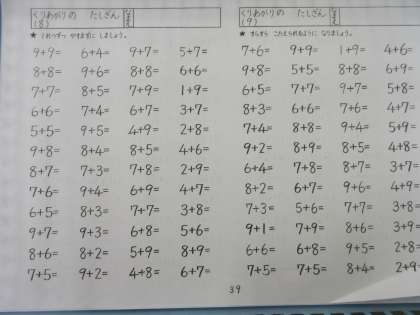 くりあがりの たしざん なまえ
(8)
★ やすまずに しましょう。
9+9= 6+4= 9+7= 5+7=
8+8= 9+6= 8+8= 6+6=
7+7= 8+5= 7+9= 1+9=
6+6= 7+4= 6+7= 3+7=
5+5= 9+5= 4+9= 2+8=
9+8= 8+4= 8+5= 4+6=
8+7= 7+3= 7+8= 2+9=
7+6= 9+4= 6+9= 4+7=
6+5= 8+3= 7+7= 3+8=
9+7= 9+3= 6+8= 5+8=
8+6= 8+2= 5+9= 8+9=
7+5= 9+2= 4+8= 6+7=
くりあがりの たしざん なまえ
(9)
★ すらすら こたえられるように なりましょう。
7+6= 9+9= 1+9= 4+6=
9+8= 5+5= 8+8= 6+9=
6+5= 7+7= 9+7= 5+8=
8+3= 6+6= 7+6= 4+7=
7+4= 8+8= 9+4= 5+9=
8+2= 8+9= 8+5= 4+8=
6+4= 7+8= 8+7= 3+7=
8+2= 6+7= 9+6= 4+9=
7+3= 5+6= 7+7= 3+8=
9+1= 7+9= 8+6= 3+9=
6+6= 6+8= 9+5= 2+8=
7+5= 7+5= 8+4= 2+9=
39